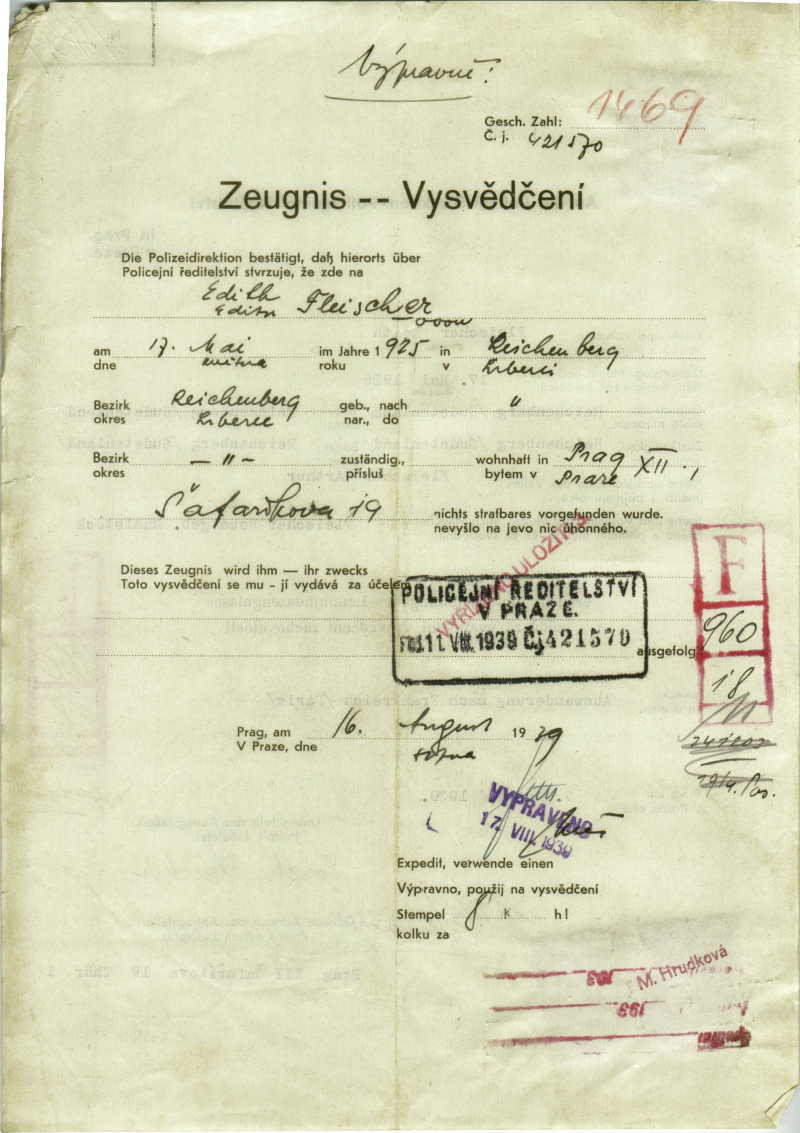 Výpravně!
Gesch. Zahl: 1469
Č. j. 421570
Zeugnis -- Vysvědčení
Die Polizeidirektion bestätigt, daß hierorts über
Policejní ředitelství stvrzuje, že zde na
Edith Fleischer
Editu ovou
am 17. Mai im Jahre 1 925 in Reichenberg
dne května roku v Liberci
Bezirk Reichenberg geb., nach "
okres Liberec nar., do
Bezirk — " — zuständig., wohnhaft in Prag XII.,
okres přísluš bytem v Praze
Šafaříkova 19 nichts strafbares vorgefunden wurde.
nevyšlo na jevo nic úhonného.
Dieses Zeugnis wird ihm — ihr zwecks
Toto vysvědčení se mu - jí vydává za účelem
POLICEJNÍ ŘEDITELSTVÍ
V PRAZE.
11. VIII. 1939 Čj 421570
ausgefolg
F
960
18
Prag, am 16. August 19 39
V Praze, dne srpna
VYPRAVENO
17. VIII. 1939
Expedit, verwende einen
Výpravno, použij na vysvědčení
Stempel 8 K h!
kolku za
M. Hrudková
193
193